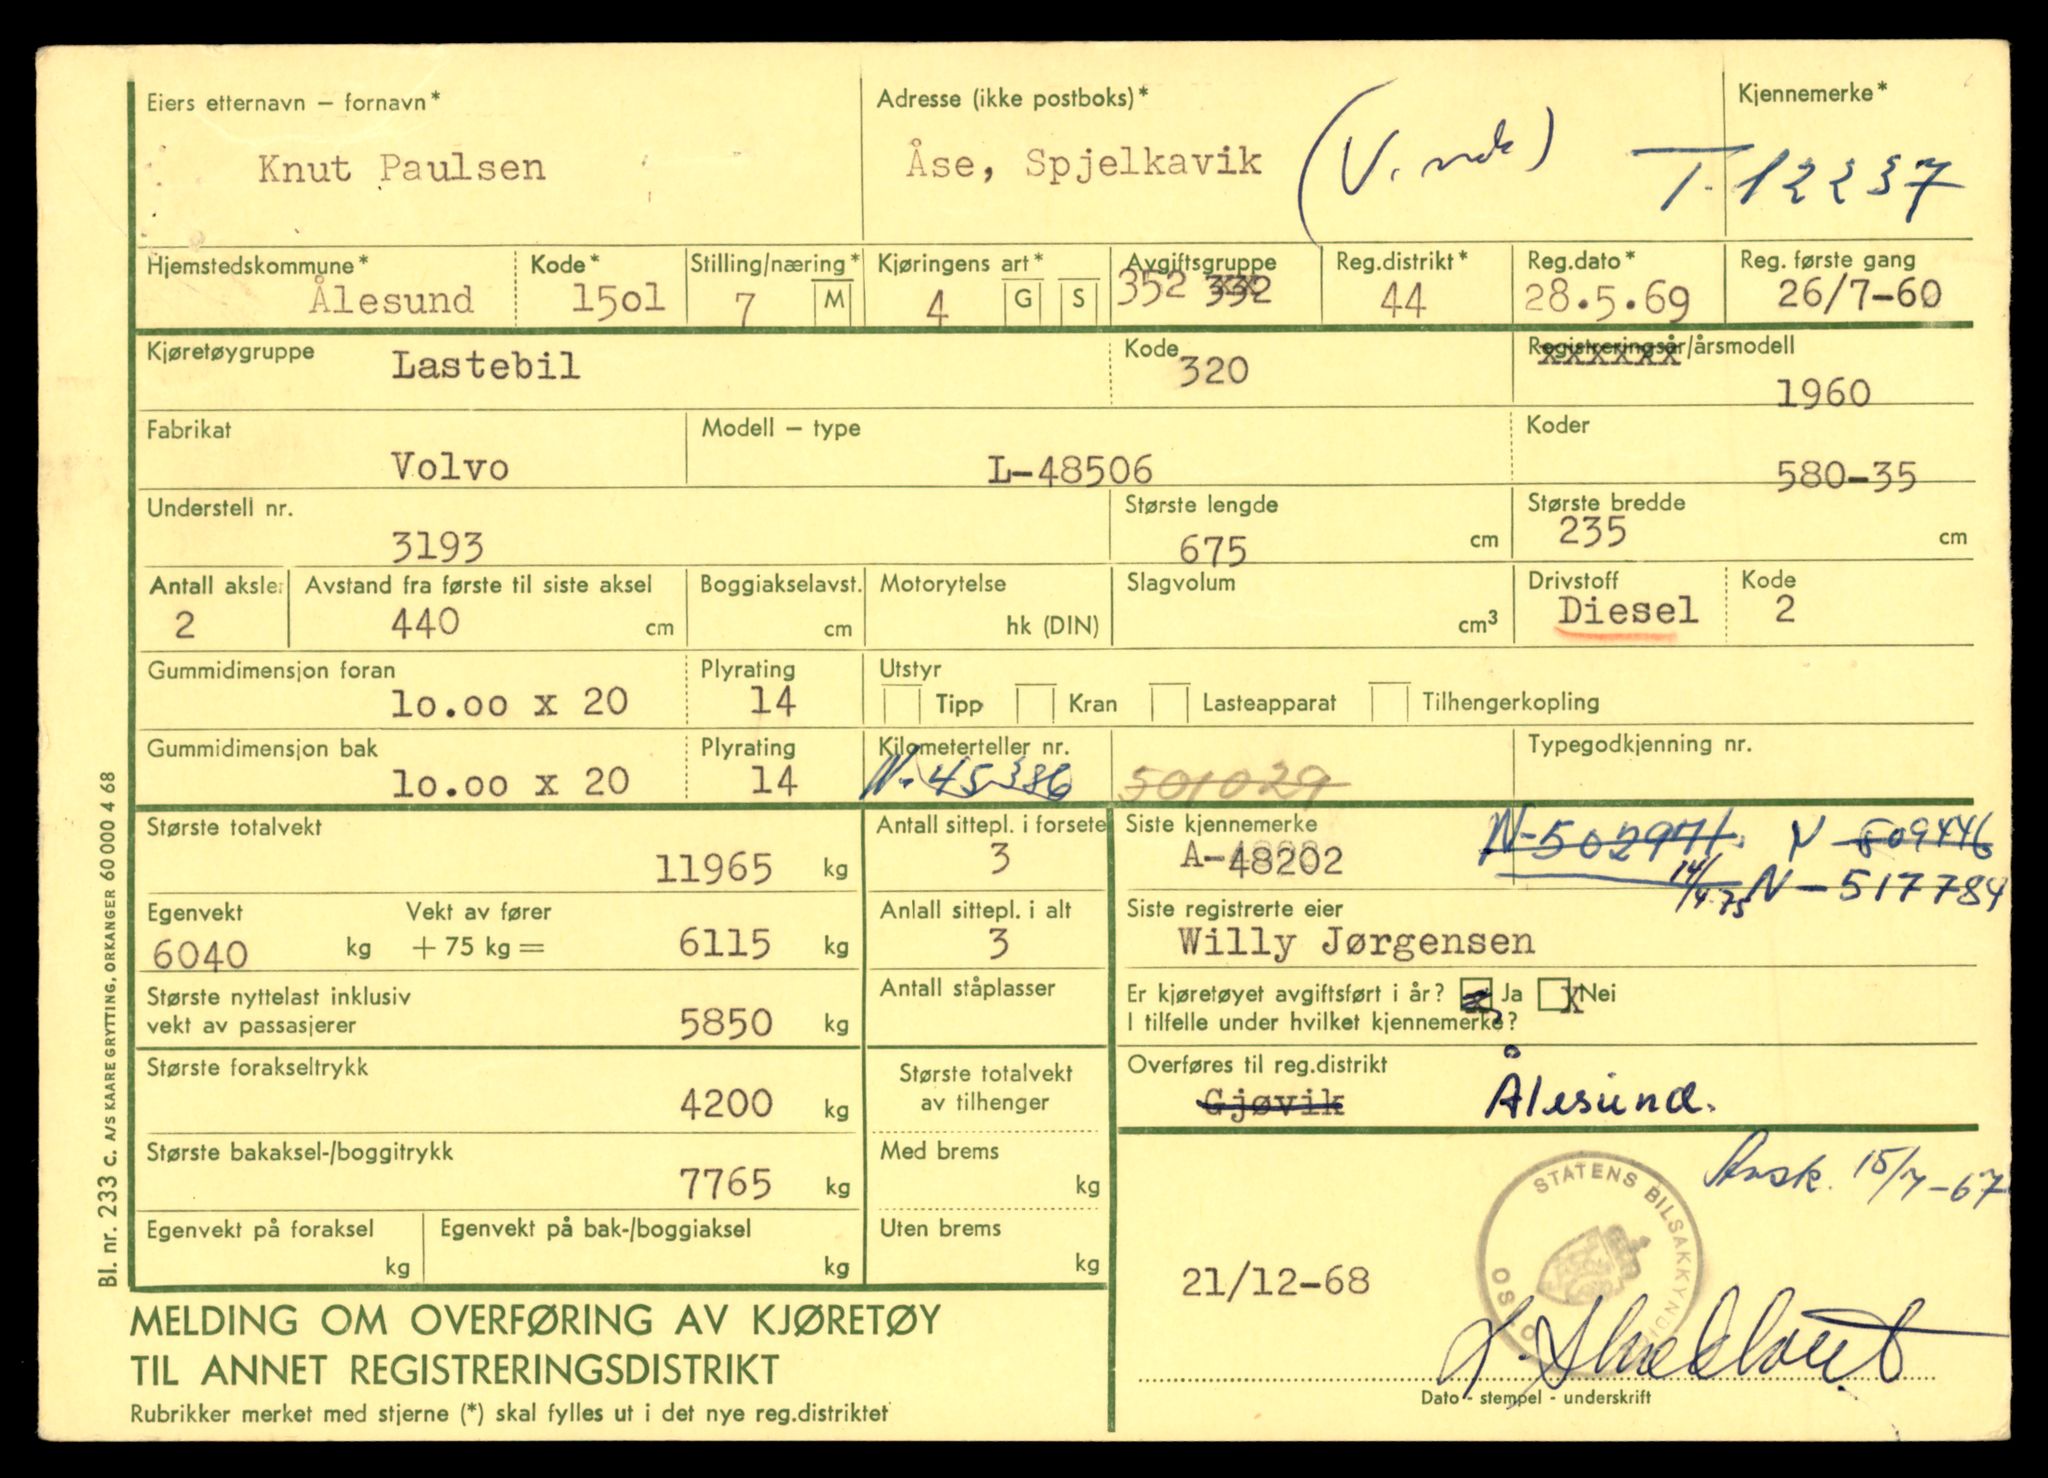 Eiers etternavn – fornavn* Adresse (ikke postboks)* Kjennemerke*
Knut Paulsen Åse, Spjelkavik T-12237
Hjemstedskommune* Kode* Stilling/næring* Kjøringens art* Avgiftsgruppe Reg.distrikt* Reg.dato* Reg. første gang
Ålesund 15o1 7 M 4 G S 352 332 44 28.5.69 26/7-60
Kjøretøygruppe Kode Registreringsår/årsmodell
Lastebil 320 1960
Fabrikat Modell – type Koder
Volvo L-48506 580-35
Understell nr. Største lengde Største bredde
3193 675 cm 235 cm
Antall aksler Avstand fra første til siste aksel Boggiakselavst. Motorytelse Slagvolum Drivstoff Kode
2 440 cm cm hk (DIN) cm³ Diesel 2
Gummidimensjon foran Plyrating Utstyr
1o.oo x 20 14 Tipp Kran Lasteapparat Tilhengerkopling
Gummidimensjon bak Plyrating Kilometerteller nr. Typegodkjenning nr.
1o.oo x 20 14 N-45386 501029
Største totalvekt Antall sittepl. i forsete Siste kjennemerke
11965 kg 3 A-48202 N-509446
14/4-75 N-517784
Egenvekt Vekt av fører Anlall sittepl. i alt Siste registrerte eier
6040 kg + 75 kg = 6115 kg 3 Willy Jørgensen
Største nyttelast inklusiv Antall ståplasser Er kjøretøyet avgiftsført i år? Ja X Nei
vekt av passasjerer 5850 kg I tilfelle under hvilket kjennemerke?
Største forakseltrykk Største totalvekt Overføres til reg.distrikt
4200 kg av tilhenger Gjøvik Ålesund.
Største bakaksel-/boggitrykk Med brems
7765 kg kg 15/7-67
Egenvekt på foraksel Egenvekt på bak-/boggiaksel Uten brems
kg kg kg 21/12-68
STATENS BILSAKKYNDIGE OSLO
MELDING OM OVERFØRING AV KJØRETØY
TIL ANNET REGISTRERINGSDISTRIKT
Dato - stempel - underskrift
Rubrikker merket med stjerne (*) skal fylles ut i det nye reg.distriktet
Bl. nr. 233 c. A/S KAARE GRYTTING, ORKANGER 60 000 4 68